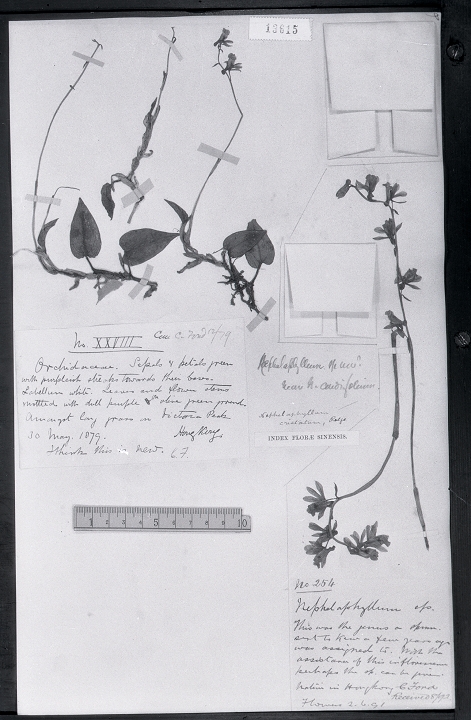 13615
No. XXVIII Com C. Ford 9/79
Orchidaceae. Sepals & petals green
with purplish towards their bases.
Labellum white. Leaves and flower stems
mottled with dull purple & olive green ground
Amongst long grass on Victoria Peak
30 May. 1879. Hong Kong.
I think this is new. C.F.
Nephelaphyllum
near N.
Nephelaphyllum
cristatum, Rolfe
INDEX FLORÆ SINENSIS.
1 2 3 4 5 6 7 8 9 10
No 254
Nephelaphyllum sp.
This was the genus a specimen
sent to Kew a few years ago
was assigned to. With the
assistance of this inflorescence
perhaps the sp. can be given
Native in Hongkong C. Ford
Received
Flowers 2.6.91